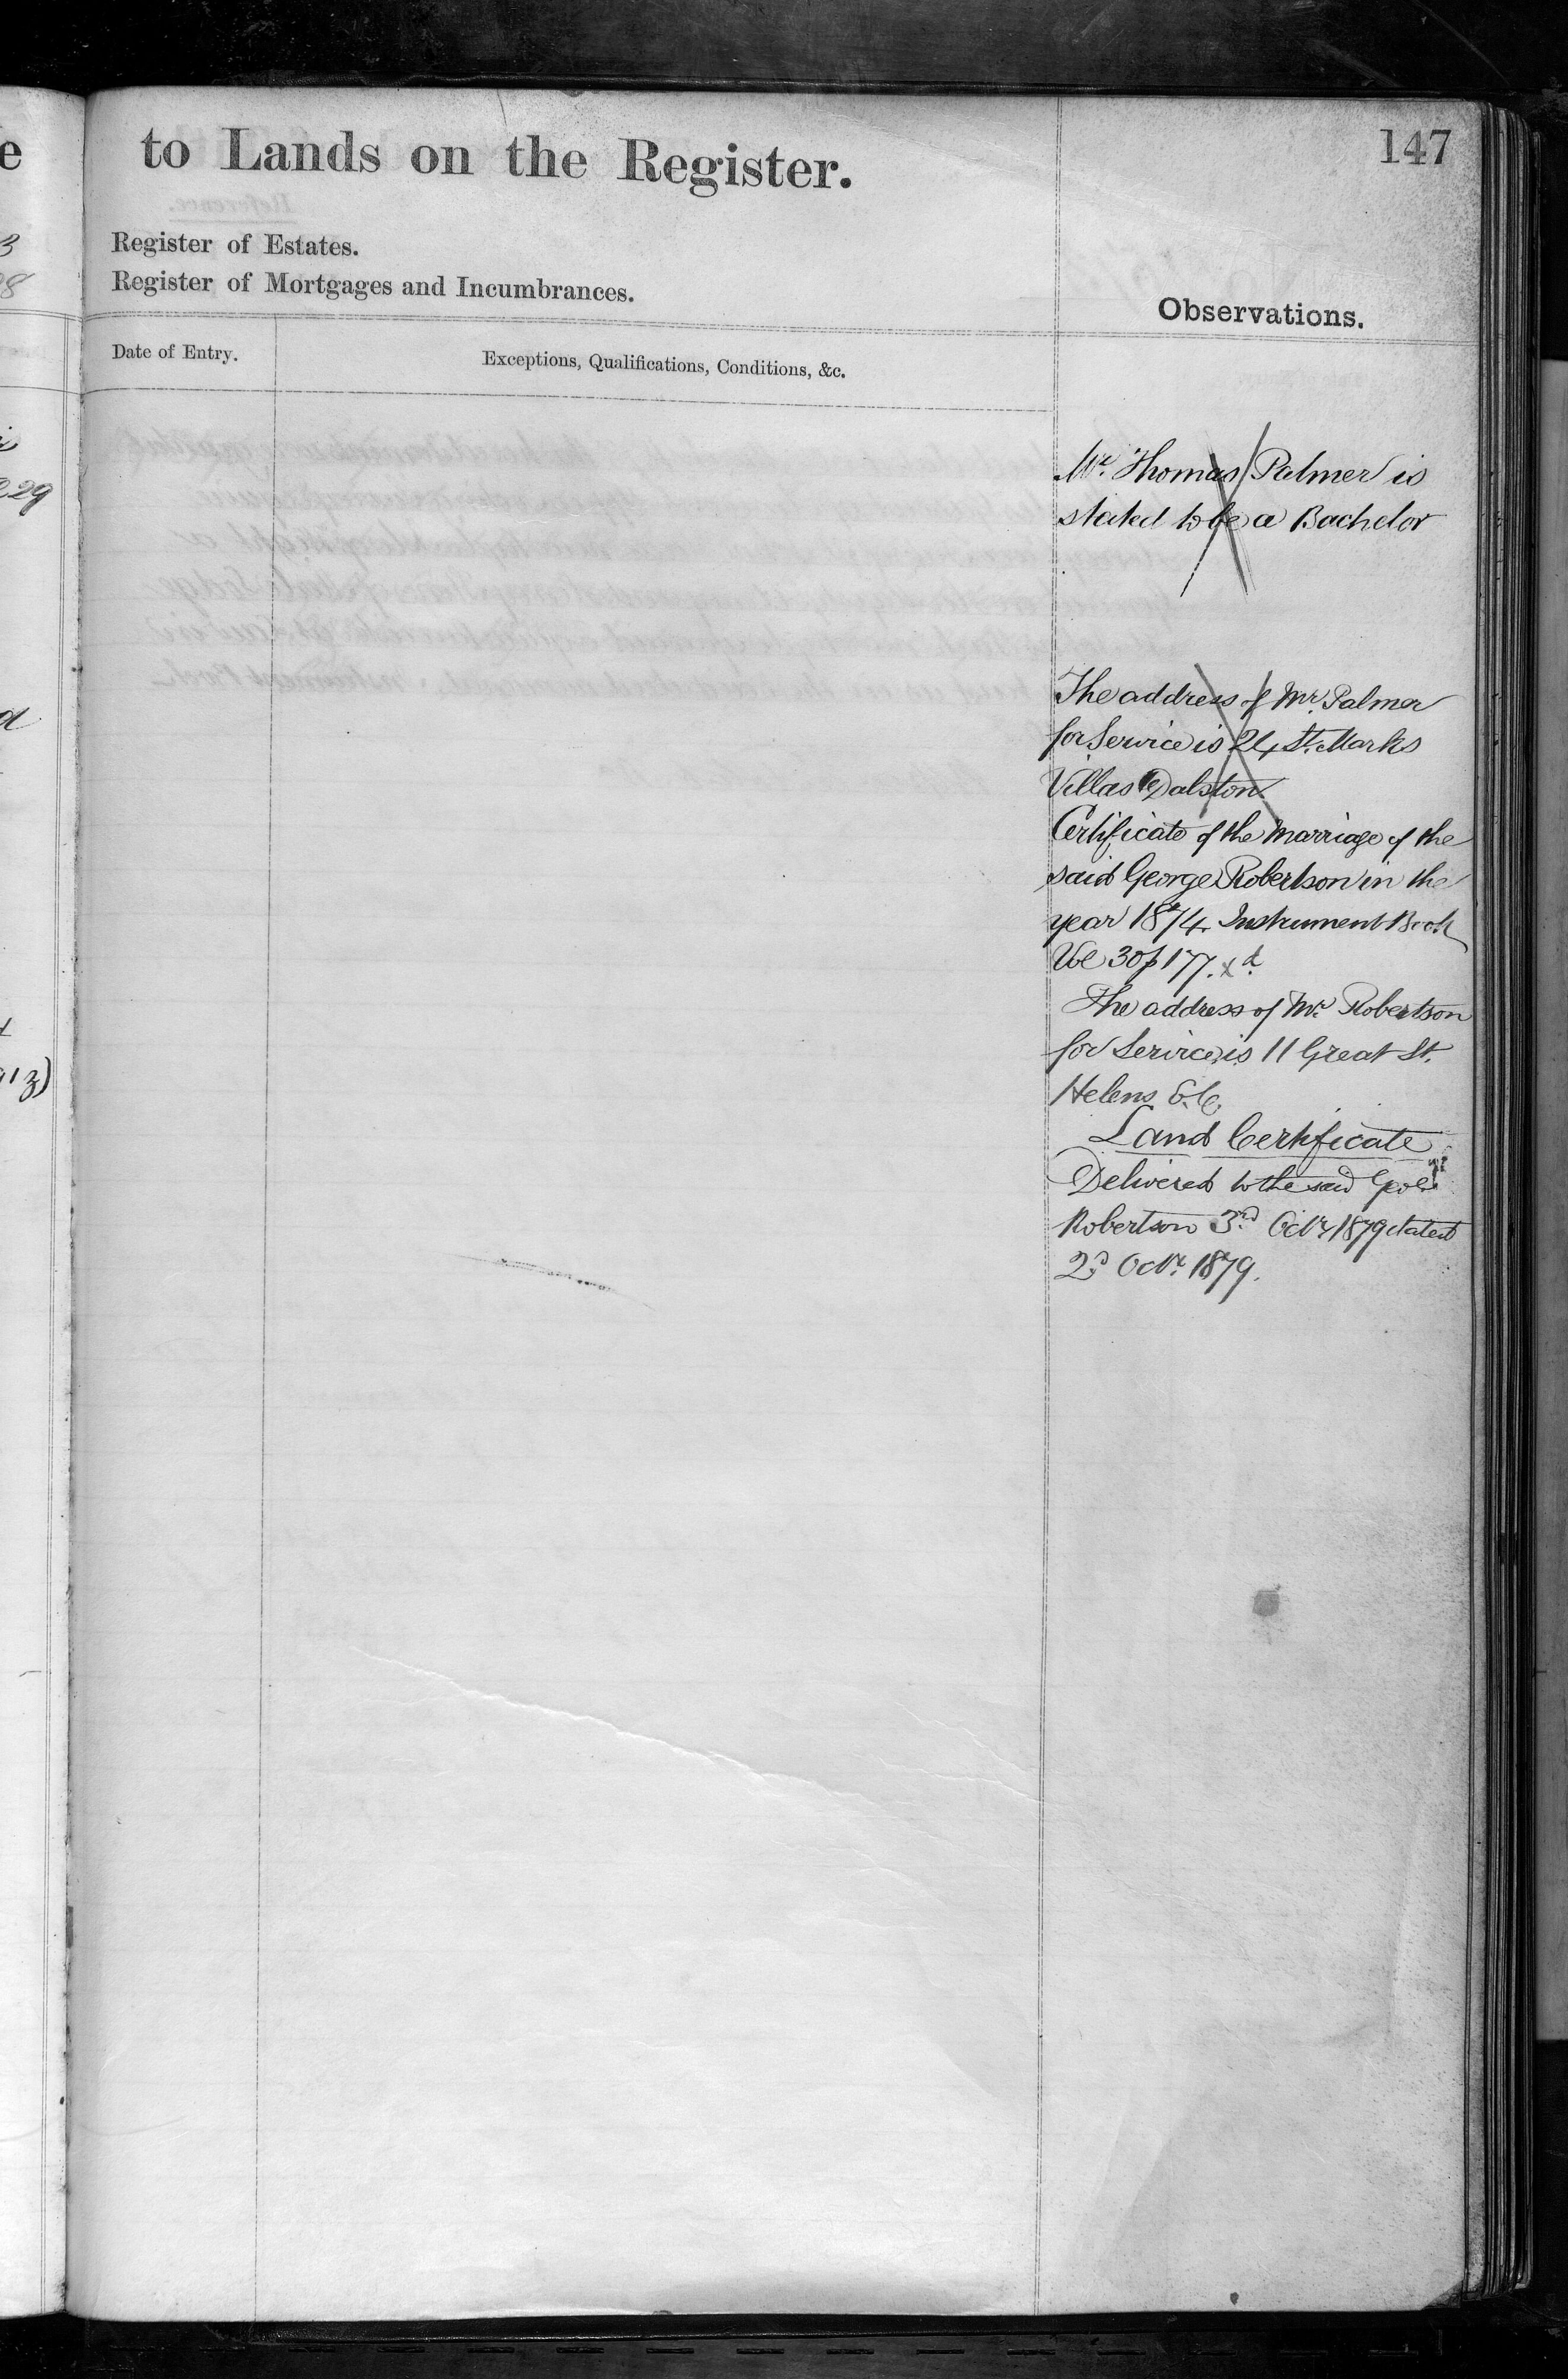 to Lands on the Register.
147
Register of Estates.
Register of Mortgages and Incumbrances.
Observations.
Date of Entry.
Exceptions, Qualifications, Conditions, &c.
Mr. Thomas Palmer is
stated to be a Bachelor
The address of Mr. Palmer
for Service is 24 St. Marks
Villas Dalston.
Certificate of the Marriage of the
said George Robertson in the
year 1874. Instrument Book
Vol 30 p 177.
The address of Mr. Robertson
for Service is 11 Great St.
Helens E.C.
Land Certificate
Delivered to the said George
Robertson 3rd Octr 1879 dated
2d Octr. 1879.
229